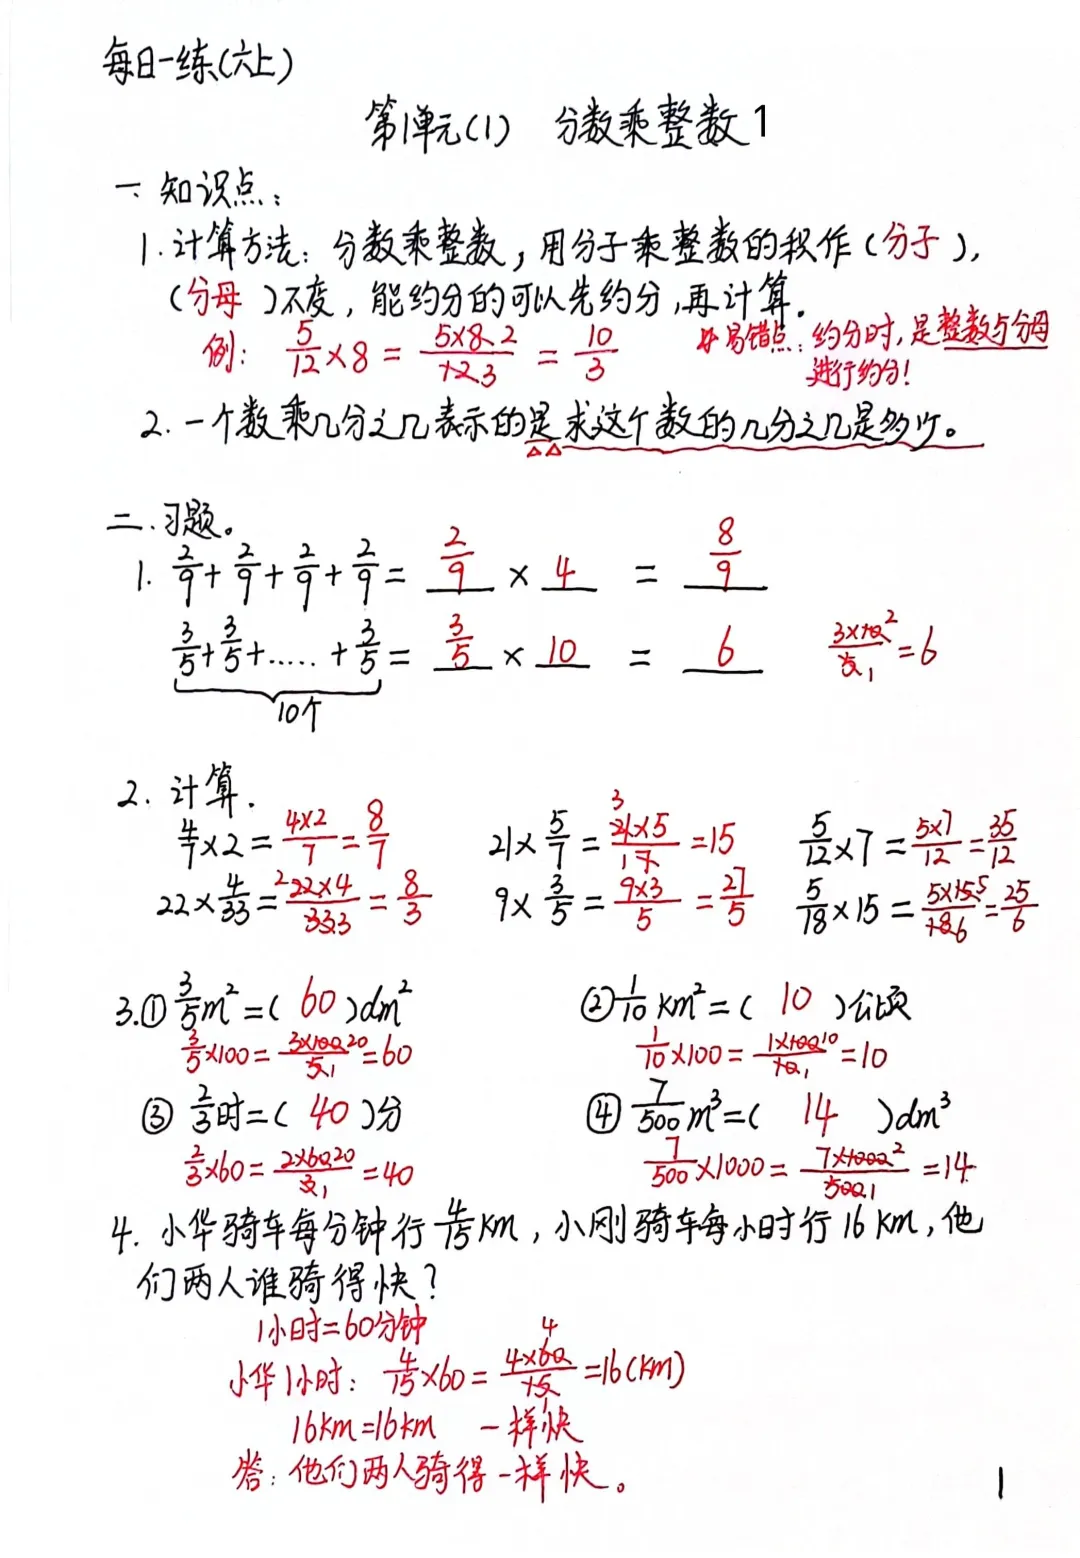 每日一练(六上)
第1单元(1) 分数乘整数1
一、知识点:
1.计算方法:分数乘整数,用分子乘整数的积作(分子),
(分母)不变,能约分的可以先约分,再计算。
例: 5/12×8=5×8 2/12 3=10/3 *易错点:约分时,是整数与分母
进行约分!
2.一个数乘几分之几表示的是求这个数的几分之几是多少。
二.习题。
1. 2/9+2/9+2/9+2/9=2/9×4=8/9
3/5+3/5+.....+3/5=3/5×10=6 3×10 2/5 1=6
10个
2.计算.
4/7×2=4×2/7=8/7 21×5/7=3 21×5/1 7=15 5/12×7=5×7/12=35/12
22×4/33=2 22×4/33 3=8/3 9×3/5=9×3/5=27/5 5/18×15=5×15 5/18 6=25/6
3.①3/5m²=(60)dm² ②1/10km²=(10)公顷
3/5×100=3×100 20/5 1=60 1/10×100=1×100 10/10 1=10
③2/3时=(40)分 ④7/500m³=(14)dm³
2/3×60=2×60 20/3 1=40 7/500×1000=7×1000 2/500 1=14
4.小华骑车每分钟行4/15km,小刚骑车每小时行16km,他
们两人谁骑得快?
1小时=60分钟
小华1小时:4/15×60=4×60 4/15 1=16(km)
16km=16km 一样快
答:他们两人骑得一样快。
1